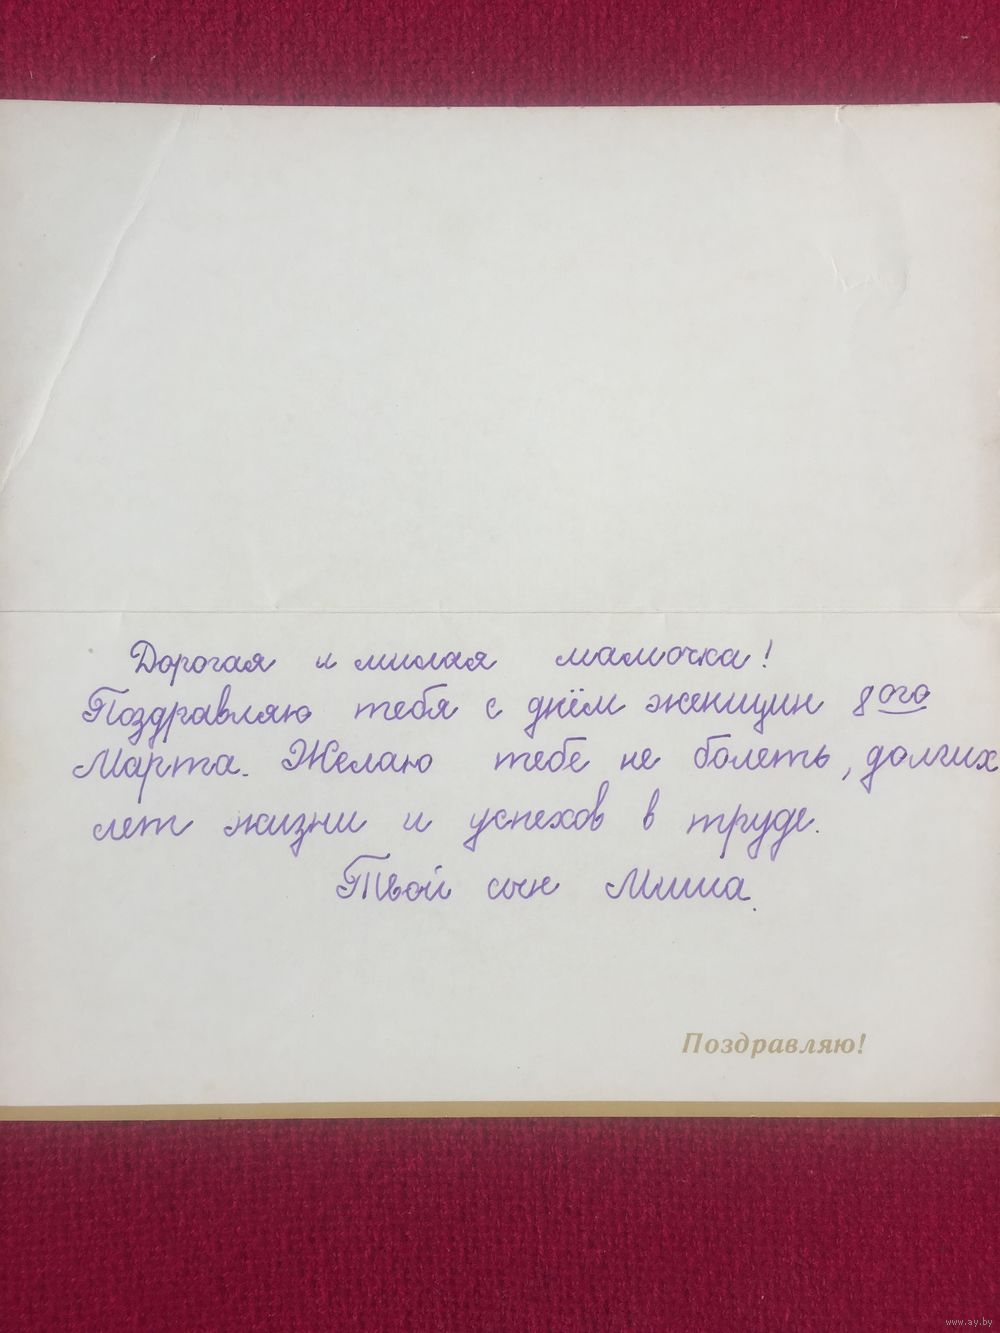 Дорогая и милая мамочка!
Поздравляю тебя с днём женщин 8ого
Марта. Желаю тебе не болеть, долгих
лет жизни и успехов в труде.
Твой сын Миша.
Поздравляю!
www.ay.by